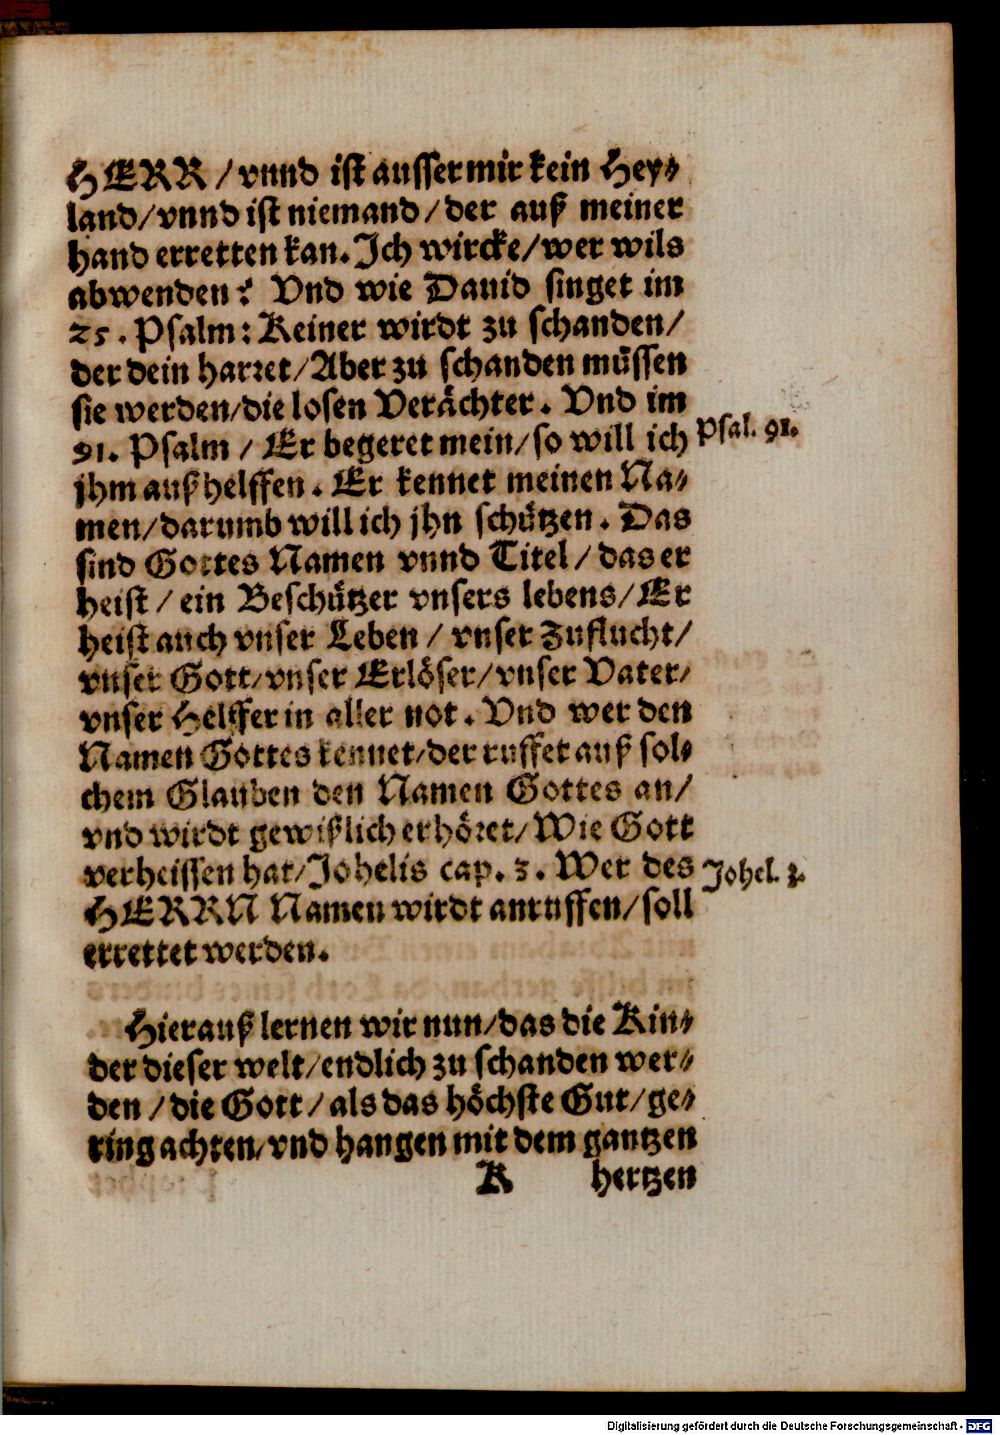 HERR / vnnd ist ausser mir kein Hey-
land / vnnd ist niemand / der auß meiner
hand erretten kan. Ich wircke / wer wils
abwenden? Vnd wie Dauid singet im
25. Psalm: Keiner wirdt zu schanden /
der dein harret / Aber zu schanden müssen
sie werden / die losen Verächter. Vnd im
91. Psalm / Er begeret mein / so will ich
Psal. 91.
jhm außhelffen. Er kennet meinen Na-
men / darumb will ich jhn schützen. Das
sind Gottes Namen vnnd Titel / das er
heist / ein Beschützer vnsers lebens / Er
heist auch vnser Leben / vnser Zuflucht /
vnser Gott / vnser Erlöser / vnser Vater /
vnser Helffer in aller not. Vnd wer den
Namen Gottes kennet / der ruffet auß sol-
chem Glauben den Namen Gottes an /
vnd wirdt gewißlich erhöret / Wie Gott
verheissen hat / Johelis cap. 3. Wer des
Johel. 3.
HERRN Namen wirdt anruffen / soll
errettet werden.
Hierauß lernen wir nun / das die Kin-
der dieser welt / endlich zu schanden wer-
den / die Gott / als das höchste Gut / ge-
ring achten / vnd hangen mit dem gantzen
K hertzen
Digitalisierung gefördert durch die Deutsche Forschungsgemeinschaft - DFG